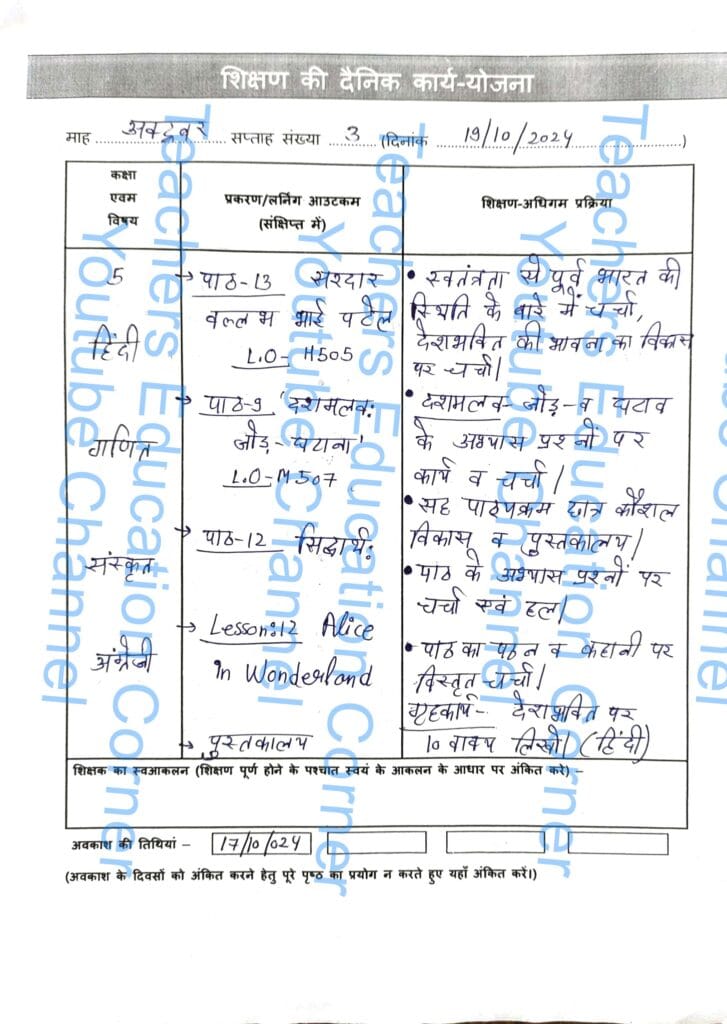 शिक्षण की दैनिक कार्य-योजना
माह अक्टूबर सप्ताह संख्या 3 (दिनांक 19/10/2024)
कक्षा
एवम
विषय
प्रकरण/लर्निंग आउटकम
(संक्षिप्त में)
शिक्षण-अधिगम प्रक्रिया
5
हिंदी
→ पाठ-13 सरदार
वल्लभ भाई पटेल
L.O- H505
• स्वतंत्रता से पूर्व भारत की
स्थिति के बारे में चर्चा,
देशभक्ति की भावना का विकास
पर चर्चा।
गणित
→ पाठ-9 'दशमलव:
जोड़-घटाना'
L.O-M507
• दशमलव जोड़-व घटाव
के अभ्यास प्रश्नों पर
कार्य व चर्चा।
• सह पाठ्यक्रम छात्र कौशल
विकास व पुस्तकालय।
संस्कृत
→ पाठ-12 सिद्धार्थ:
• पाठ के अभ्यास प्रश्नों पर
चर्चा एवं हल।
अंग्रेजी
→ Lesson:12 Alice
in Wonderland
• पाठ का पठन व कहानी पर
विस्तृत चर्चा।
→ पुस्तकालय
गृहकार्य- देशभक्ति पर
10 वाक्य लिखो। (हिंदी)
शिक्षक का स्वआकलन (शिक्षण पूर्ण होने के पश्चात स्वयं के आकलन के आधार पर अंकित करे) –
अवकाश की तिथियां – 17/10/024
(अवकाश के दिवसों को अंकित करने हेतु पूरे पृष्ठ का प्रयोग न करते हुए यहाँ अंकित करें।)
Teachers Education Corner
Youtube Channel
Teachers Education Corner
Youtube Channel
Teachers Education Corner
Youtube Channel